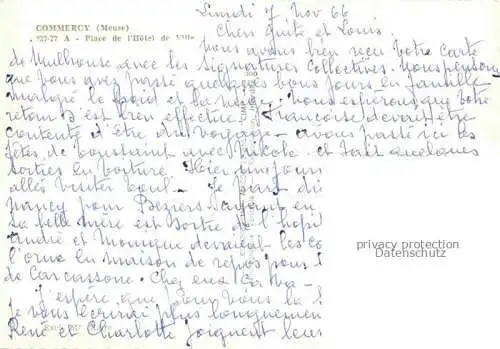 COMMERCY (Meuse)
227-77 A - Place de l'Hôtel de Ville
Lundi 7 Nov 66
Chers Guite et Louis.
Nous avons bien reçu votre carte
de Mulhouse avec les signatures collectives. Nous pensons
que vous avez passé quelques bons jours en famille
malgré le froid et la neige. Nous espérons que votre
retour s'est bien effectué. Françoise devait être
contente d'être du voyage - avons passé ici les
fêtes de Toussaint avec Nicole et fait quelques
sorties en voiture. Hier
allés visiter Toul. Je pars
Nancy pour Béziers
Sa belle mère est sortie de l'hôpi
André et Monique devraient les co
en maison de repos pour
de Carcassonne. Chez eux ça va -
J'espère que pour vous la
Je vous écrirai plus longuemen
René et Charlotte joignent leur
privacy protection
Datenschutz